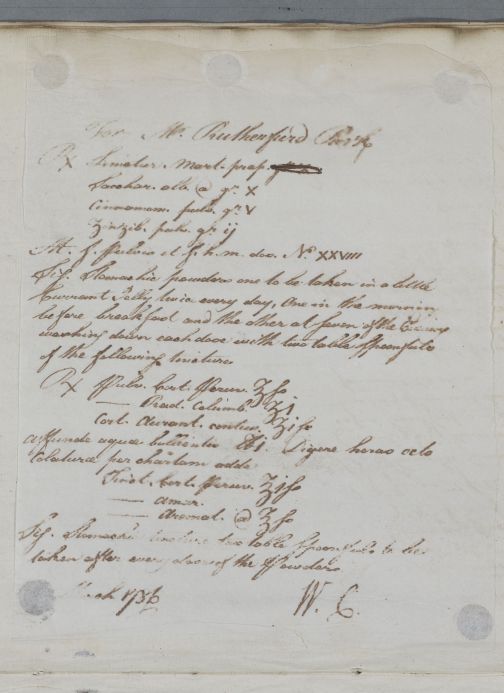 For Mr. Rutherfurd
Rx Limatur. Mart. ppp.
Sacchar. alb. @ gr. X
Cinnamom. pulv. gr. V
Zinzib. pulv. gr. ij
M. f. Pulvis et f. h. m. dos. No. XXVIII
Sig. Stomachic powders one to be taken in a little
Currant Jelly twice every day, One in the morning
before breakfast and the other at seven of the Evening
washing down each dose with two table Spoonfuls
of the following tincture
Rx Pulv. Cort. Peruv. ʒ fs
— Rad. Columb. ʒj
Cort. Aurant. contus. ʒi fs
affunde aquae bullientis ℔j. Digere horas octo
Colaturae per chartam adde
Tinct. Cort. Peruv. ʒi fs
— amar.
— Aromat. @ ʒ fs
Sig. Stomachic tincture two table Spoonfuls to be
taken after every dose of the Powders
W. C.